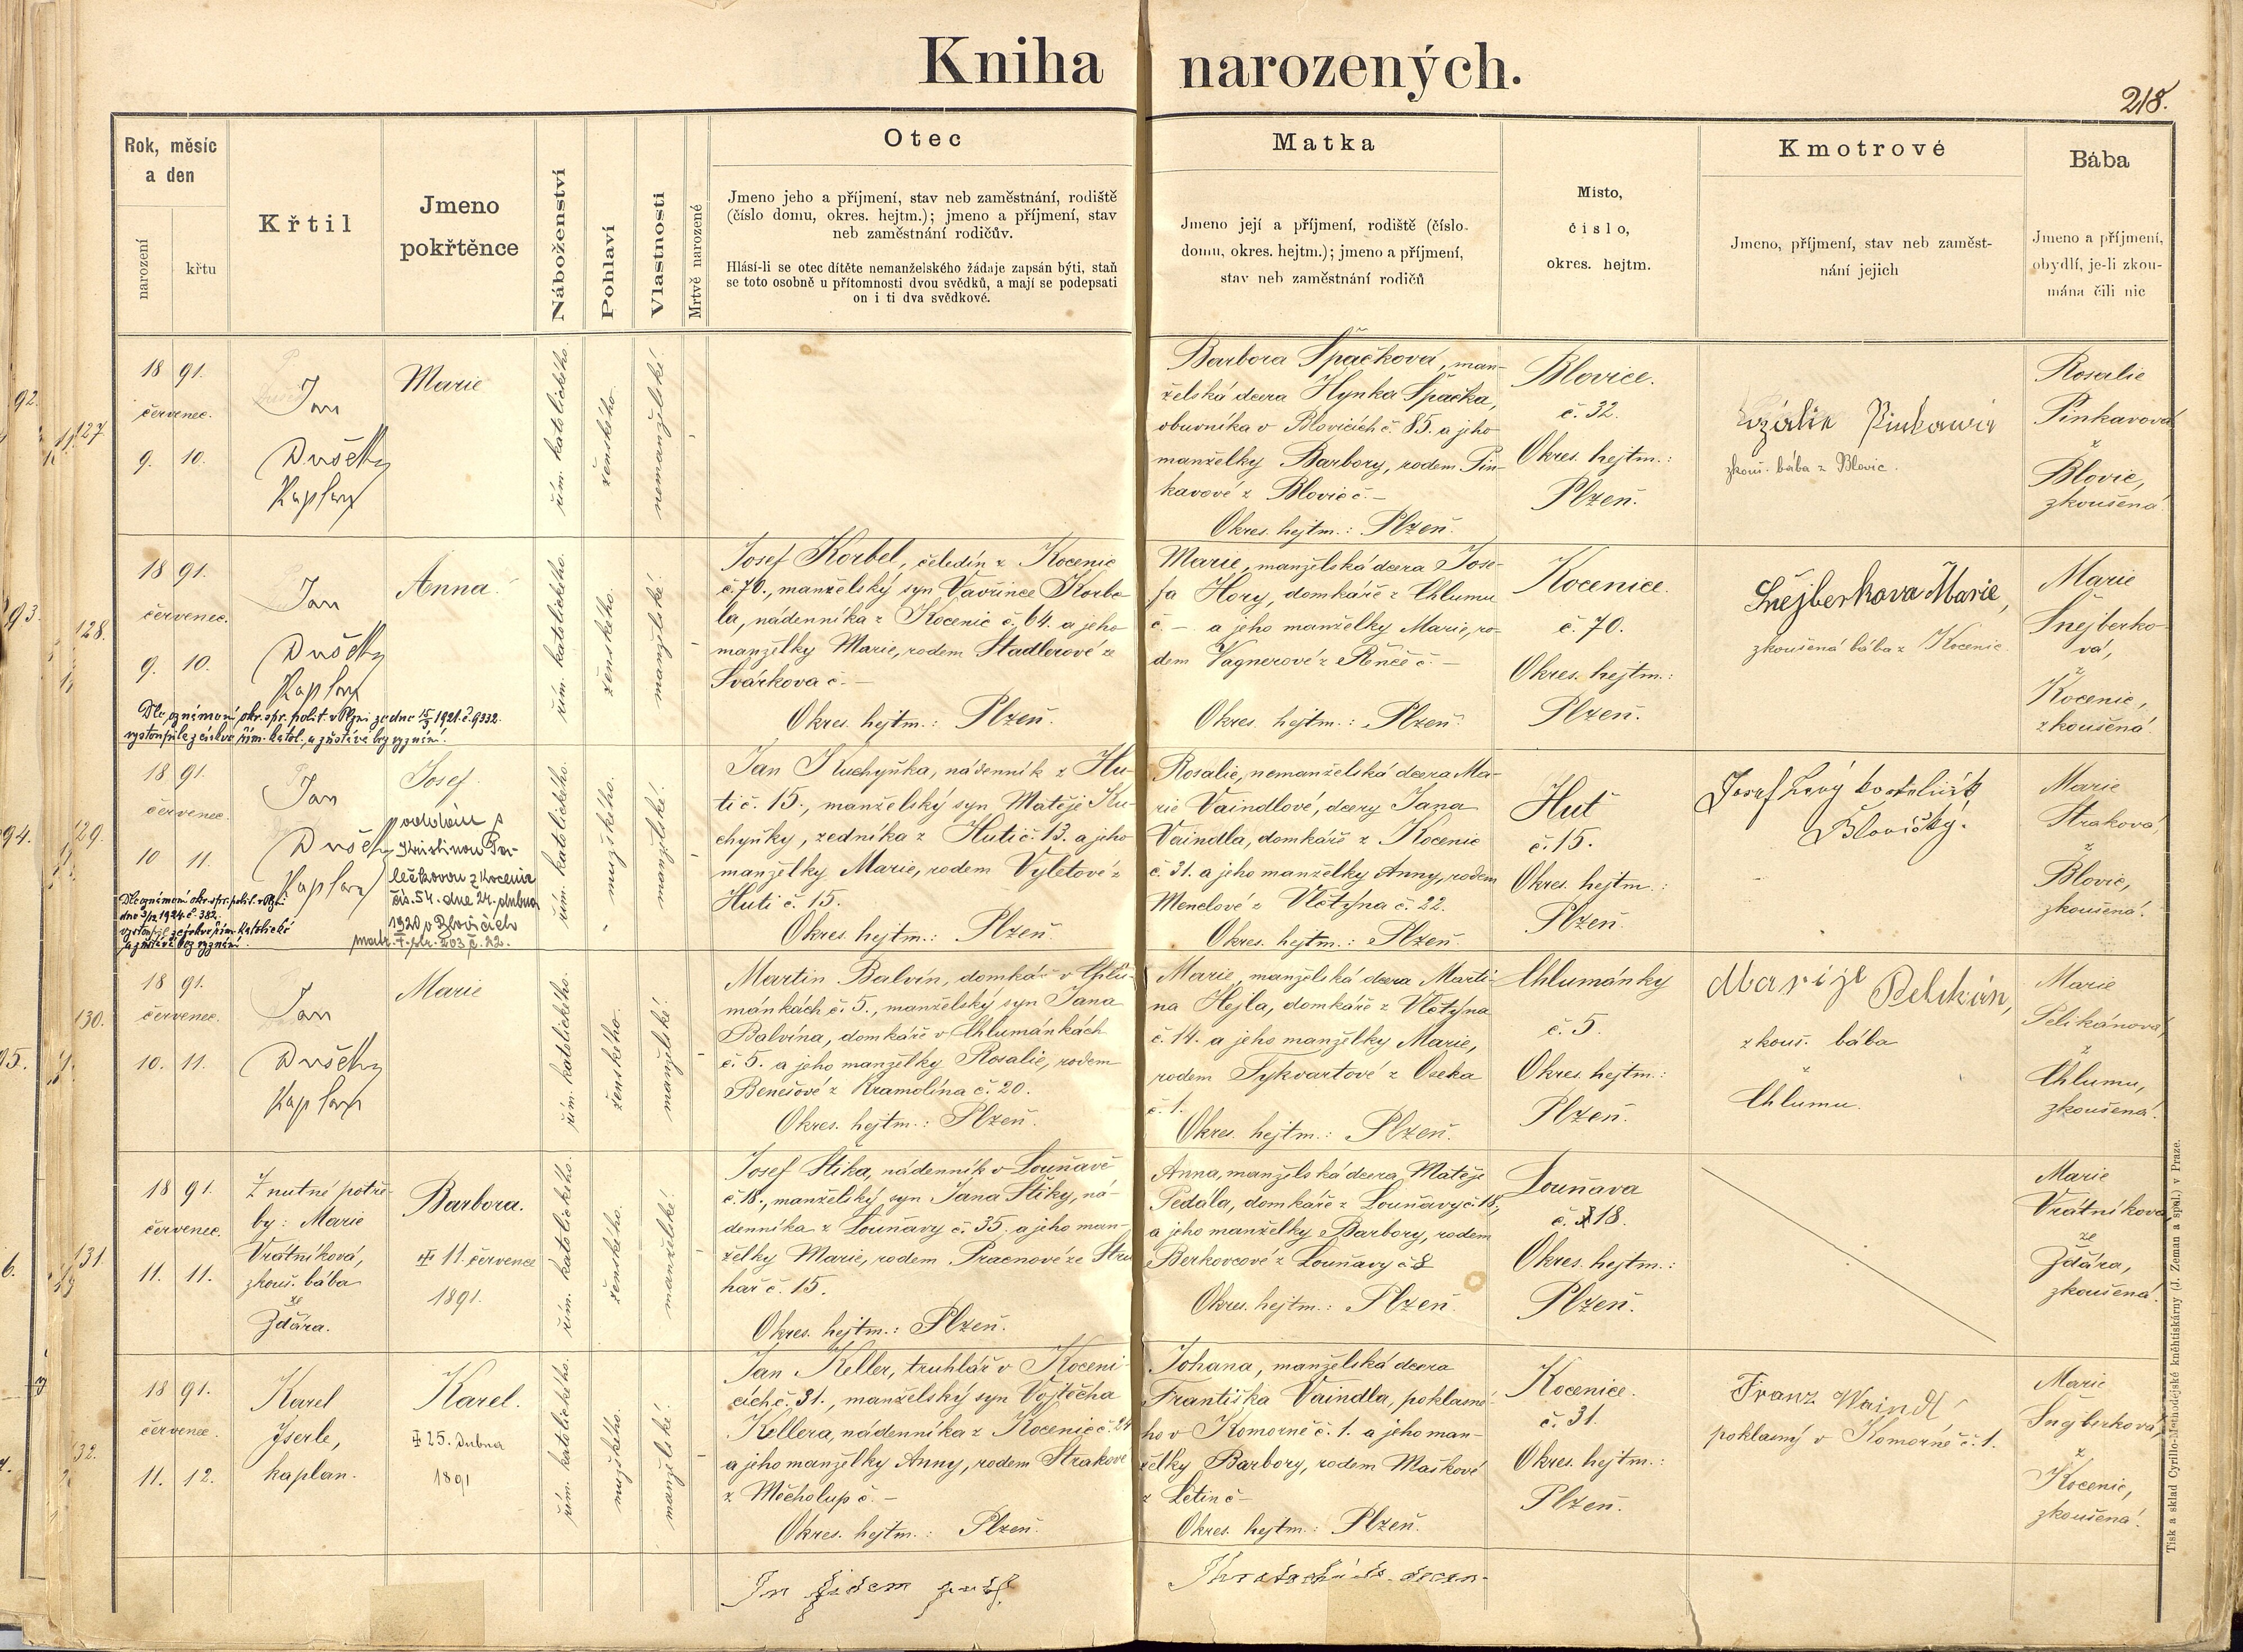 Kniha narozených.
218.
Rok, měsíc
a den
narození
křtu
Křtil
Jmeno
pokřtěnce
Náboženství
Pohlaví
Vlastnosti
Mrtvě narozené
Otec
Jmeno jeho a příjmení, stav neb zaměstnání, rodiště
(číslo domu, okres. hejtm.); jmeno a příjmení, stav
neb zaměstnání rodičův.
Hlásí-li se otec dítěte nemanželského žádaje zapsán býti, staň
se toto osobně u přítomnosti dvou svědků, a mají se podepsati
on i ti dva svědkové.
Matka
Jmeno její a příjmení, rodiště (číslo
domu, okres. hejtm.); jmeno a příjmení,
stav neb zaměstnání rodičů
Místo,
číslo,
okres. hejtm.
Kmotrové
Jmeno, příjmení, stav neb zaměst-
nání jejich
Bába
Jmeno a příjmení,
obydlí, je-li zkou-
mána čili nic
127.
1891.
červenec.
9. 10.
Jan
Dušek
Kaplan
Marie
řím. katolického.
ženského.
nemanželské.
Barbora Špačková, man-
želská dcera Hynka Špačka,
obuvníka v Blovicích č. 85. a jeho
manželky Barbory, rodem Pin-
kavové z Blovic č. –
Okres. hejtm.: Plzeň.
Blovice.
č. 32.
Okres. hejtm.:
Plzeň.
Pinkawá
zkouš. bába z Blovic.
Rosalie
Pinkavová
z
Blovic,
zkoušená
128.
1891.
červenec.
9. 10.
Jan
Dušek
Kaplan
Dle oznámení okr. spr. polit. v Plzni ze dne 15/3 1921. č. 9332.
vystoupila z církve řím. katol. a zůstává bez vyznání.
Anna.
řím. katolického.
ženského.
manželské.
Josef Korbel, čeledín z Kocenic
č. 70., manželský syn Vavřince Korbe-
la, nádenníka z Kocenic č. 64. a jeho
manželky Marie, rodem Stadlerové ze
Svárkova č. –
Okres. hejtm.: Plzeň.
Marie, manželská dcera Jose-
fa Hory, domkáře z Chlumu
č. – a jeho manželky Marie, ro-
dem Vagnerové z Řenče č. –
Okres. hejtm.: Plzeň.
Kocenice.
č. 70.
Okres. hejtm.:
Plzeň.
Šnejberkova Marie,
zkoušená bába z Kocenic.
Marie
Šnejberko-
vá,
z
Kocenic,
zkoušená.
129.
1891.
červenec.
10 11.
Jan
Dušek
Kaplan
Dle oznámení okr. spr. polit. v Plzni
dne 3/12 1924. č. 382.
vystoupil z církve řím. katolické
a zůstává bez vyznání.
Josef.
oddán s
Kristinou Pa-
lečkovou z Kocenic
čís. 54. dne 24. dubna
1920 v Blovicích
matr. I. str. 203 č. 22.
řím. katolického.
mužského.
manželské.
Jan Kuchyňka, nádenník z Hu-
ti č. 15., manželský syn Matěje Ku-
chyňky, zedníka z Huti č. 13. a jeho
manželky Marie, rodem Vyletové z
Huti č. 15.
Okres. hejtm.: Plzeň.
Rosalie, nemanželská dcera Ma-
rie Vaindlové, dcery Jana
Vaindla, domkáře z Kocenic
č. 31. a jeho manželky Anny, rodem
Menclové z Vlčtýna č. 22.
Okres. hejtm.: Plzeň.
Huť
č. 15.
Okres. hejtm.:
Plzeň.
Josef Levý kostelník
Blovický.
Marie
Straková,
z
Blovic,
zkoušená.
130.
1891.
červenec.
10. 11.
Jan
Dušek
Kaplan
Marie
řím. katolického.
ženského.
manželské.
Martin Balvín, domkář v Chlu-
mánkách č. 5., manželský syn Jana
Balvína, domkáře v Chlumánkách
č. 5. a jeho manželky Rosalie, rodem
Benešové z Kramolína č. 20.
Okres. hejtm.: Plzeň.
Marie, manželská dcera Marti-
na Hejla, domkáře z Vlčtýna
č. 14. a jeho manželky Marie,
rodem Tykvartové z Oseka
č. 1.
Okres. hejtm.: Plzeň.
Chlumánky
č. 5.
Okres. hejtm.:
Plzeň.
Marije Pelikán,
zkouš. bába
z
Chlumu.
Marie
Pelikánová,
z
Chlumu,
zkoušená.
131.
1891.
červenec.
11. 11.
Z nutné potře-
by: Marie
Vrátníková,
zkouš. bába
ze
Ždára.
Barbora.
11. července
1891.
řím. katolického.
ženského.
manželské.
Josef Štika, nádenník v Louňavě
č. 18., manželský syn Jana Štiky, ná-
denníka z Louňavy č. 35. a jeho man-
želky Marie, rodem Pracnové ze Stru-
hař č. 15.
Okres. hejtm.: Plzeň.
Anna, manželská dcera Matěje
Pedála, domkáře z Louňavy č. 18,
a jeho manželky Barbory, rodem
Berkovcové z Louňavy č. 8
Okres. hejtm.: Plzeň.
Louňava
č. 18.
Okres. hejtm.:
Plzeň.
Marie
Vrátníková
ze
Ždára,
zkoušená.
132.
1891.
červenec.
11. 12.
Karel
Jserle,
kaplan.
Karel.
25. dubna
1891
řím. katolického.
mužského.
manželské.
Jan Keller, truhlář v Koceni-
cích č. 31., manželský syn Vojtěcha
Kellera, nádenníka z Kocenic č. 24
a jeho manželky Anny, rodem Strakové
z Měcholup č. –
Okres. hejtm.: Plzeň.
Johana, manželská dcera
Františka Vaindla, poklasné-
ho v Komorně č. 1. a jeho man-
želky Barbory, rodem Maškové
z Letin č –
Okres. hejtm.: Plzeň.
Kocenice.
č. 31.
Okres. hejtm.:
Plzeň.
Franz Waindl
poklasný v Komorně č. 1.
Marie
Šnejberková,
z
Kocenic,
zkoušená.
Tisk a sklad Cyrillo-Methodějské kněhtiskárny (J. Zeman a spol.) v Praze.